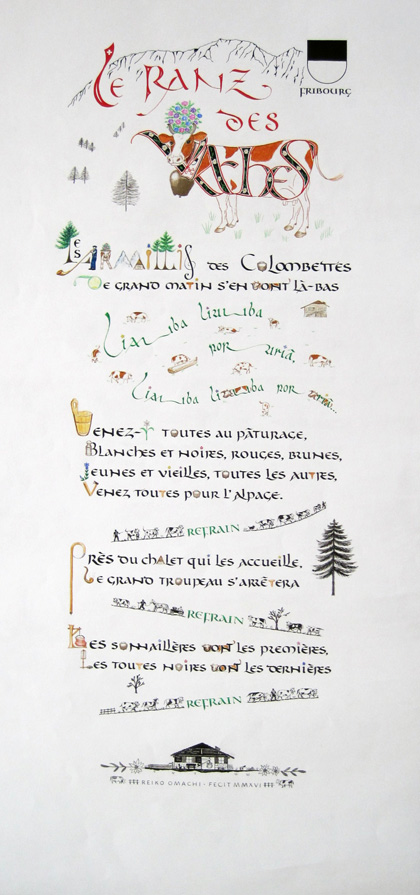 Le Ranz
FRIBOURG
des
Vaches
Les Armaillis des Colombettes
De grand matin s'en vont là-bas
Liauba liauba
por aria,
Liauba liauba por aria...
Venez-y toutes au pâturage,
Blanches et noires, rouges, brunes,
Jeunes et vieilles, toutes les autres,
Venez toutes pour l'alpage.
REFRAIN
Près du chalet qui les accueille,
Le grand troupeau s'arrêtera
REFRAIN
Les sonnaillères vont les premières,
Les toutes noires vont les dernières
REFRAIN
REIKO OMACHI - FECIT MMXVI